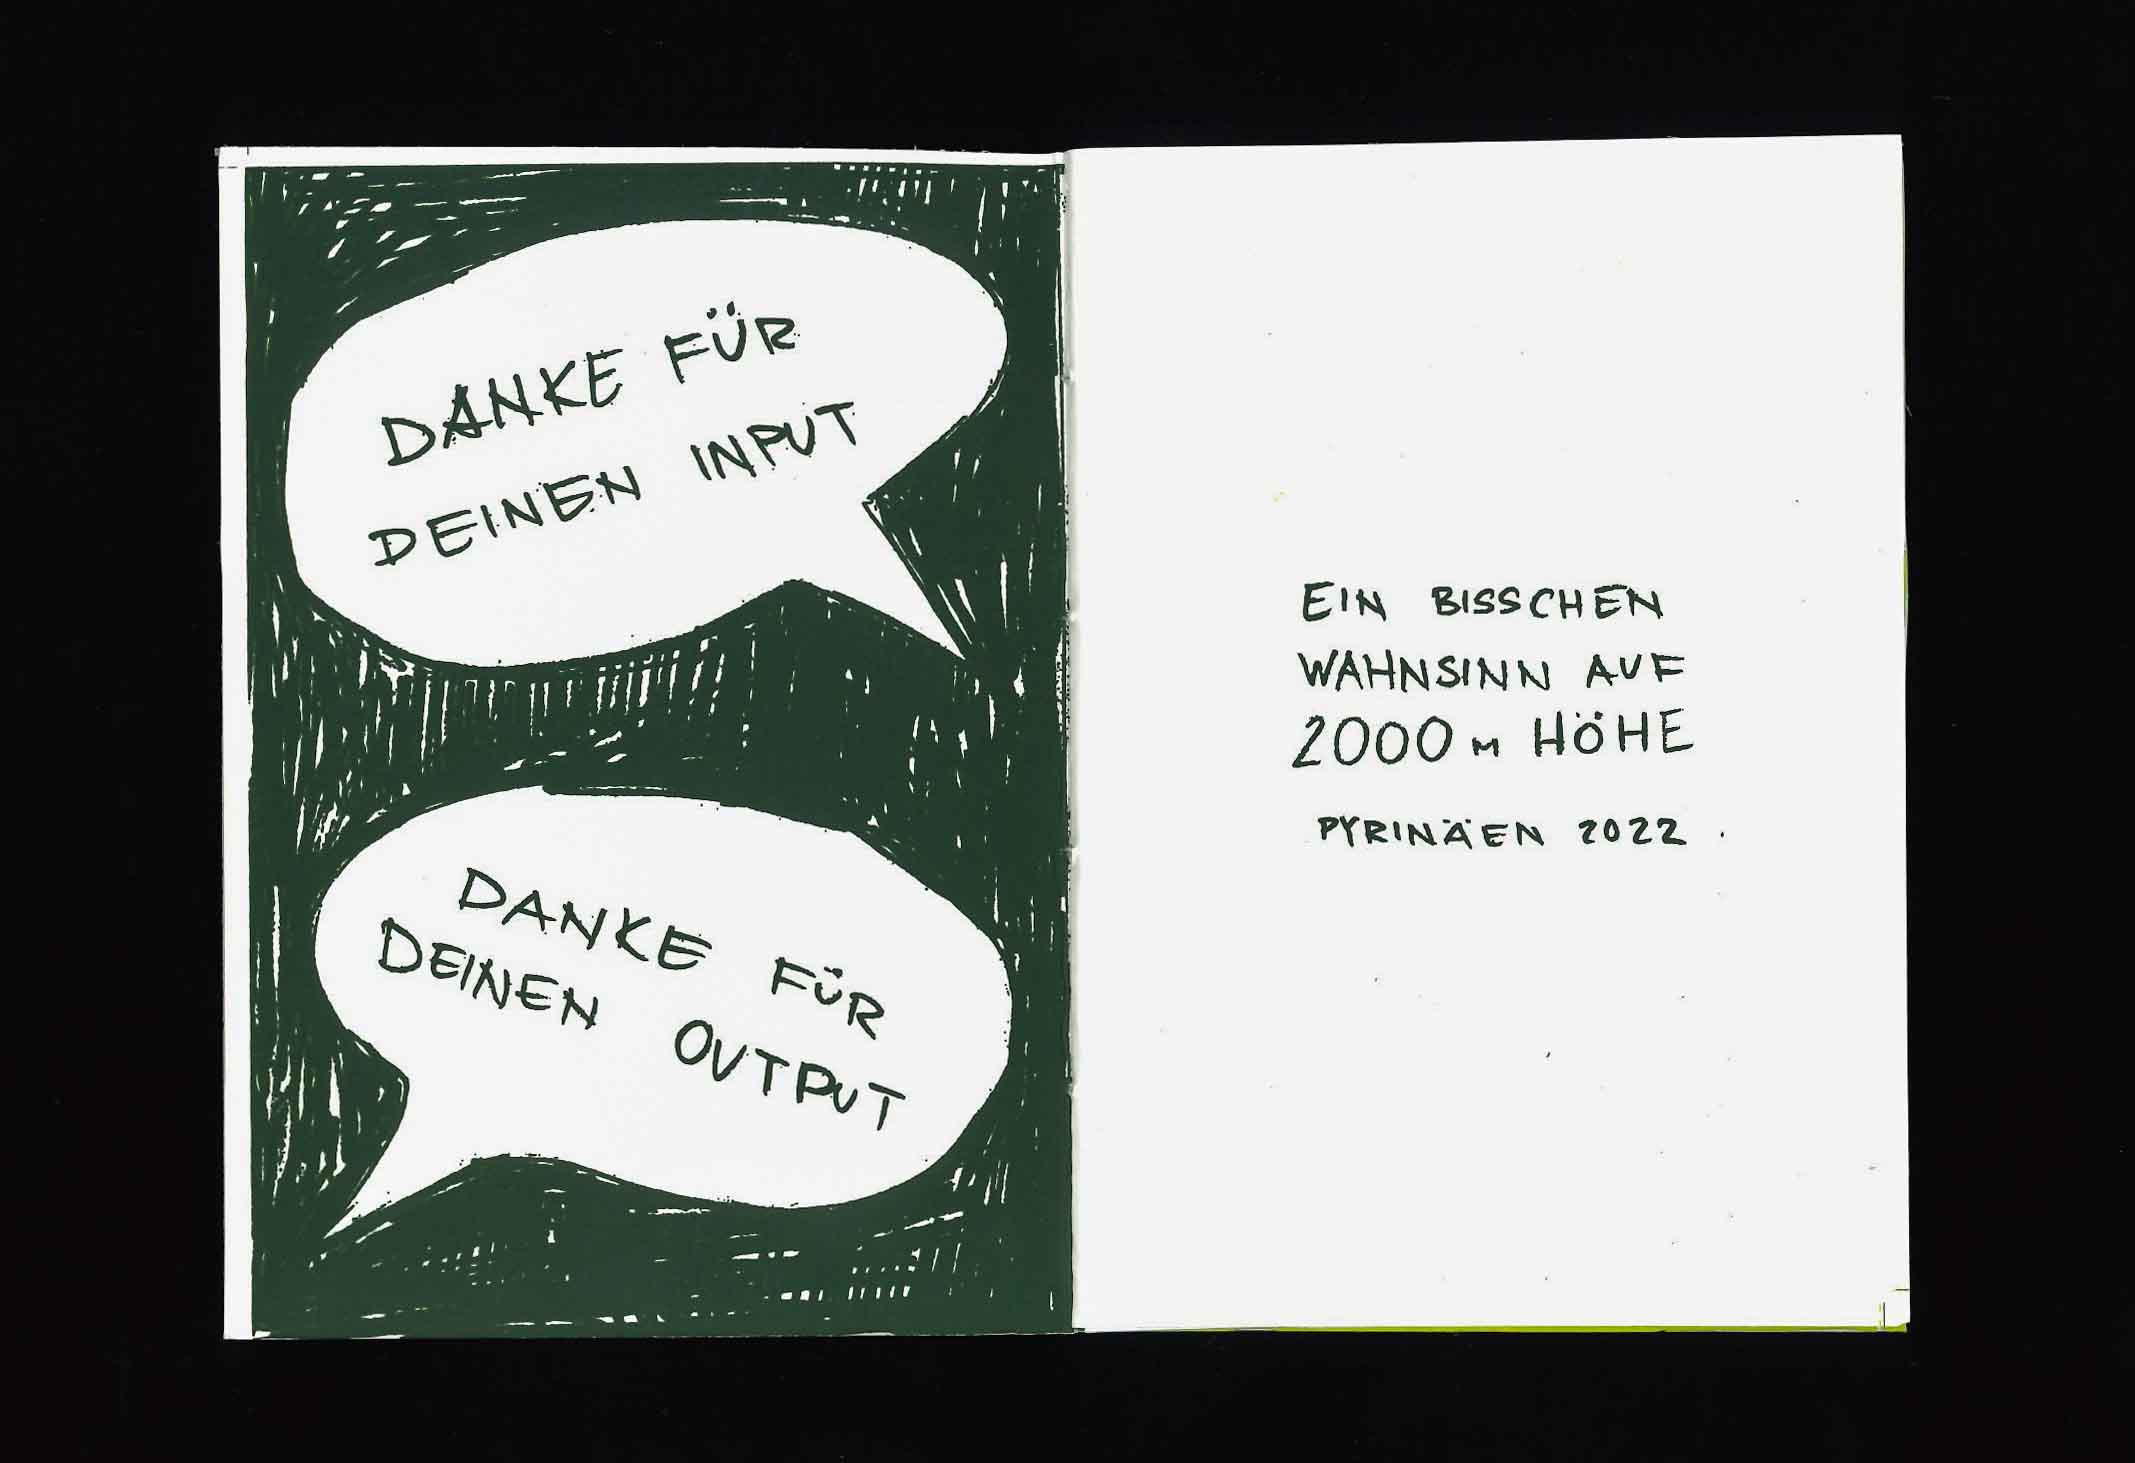 DANKE FÜR
DEINEN INPUT
DANKE FÜR
DEINEN OUTPUT
EIN BISSCHEN
WAHNSINN AUF
2000 m HÖHE
PYRINÄEN 2022